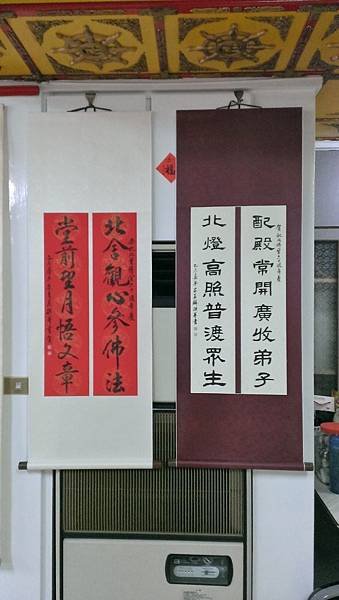 配殿常開廣收弟子
北燈高照普渡眾生
福
北舍觀心參佛法
堂前望月悟文章